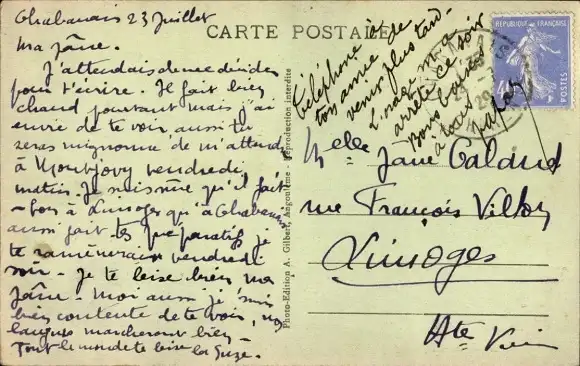 Chabanais 23 Juillet
CARTE POSTALE
Ma Jâne.
J'attendais de me décider
pour t'écrire. Il fait bien
chaud pourtant mais j'ai
envie de te voir, aussi tu
seras mignonne de m'attendre
à Montjovy vendredi
matin. Je suis sûre qu'il fait
bon à Limoges qu'à Chabanais
aussi fait tes préparatifs je
te ramènerai vendredi
soir. Je te bise bien ma
Jâne. Moi aussi je suis
bien contente de te voir, nos
langues marcheront bien
Tout le monde te bise
Photo-Edition A. Gilbert, Angoulême - Reproduction interdite
Téléphone à
ton amie de
venir plus tard.
L'orage m'a
arrêté ce soir
Bons baisers
à tous
papa
REPUBLIQUE FRANÇAISE
Melle Jâne Caland
rue François Villon
Limoges
Hte Vien